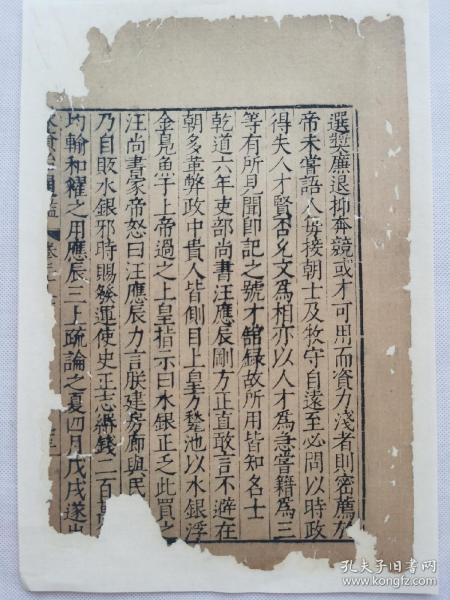 選奬廉退抑奔競或才可用而資力淺者則密薦於
帝未嘗語人每接朝士及牧守自遠至必問以時政
得失人才賢否允文爲相亦以人才爲急嘗籍爲三
等有所見聞即記之號才舘録故所用皆知名士
乾道六年吏部尚書汪應辰剛方正直敢言不避在
朝多革弊政中貴人皆側目上皇方甃池以水銀浮
金鳬魚于上帝過之上皇指示曰水銀正乏此買之
汪尚書家帝怒曰汪應辰力言朕建房廊與民
乃自販水銀邪時賜發運使史正志緡錢二百萬
均輸和糴之用應辰三上疏論之夏四月戊戌遂出
資治通鑑 卷
孔夫子旧书网
www.kongfz.com